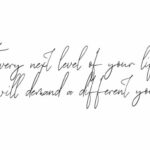 very next level of your li
will demand a different yo